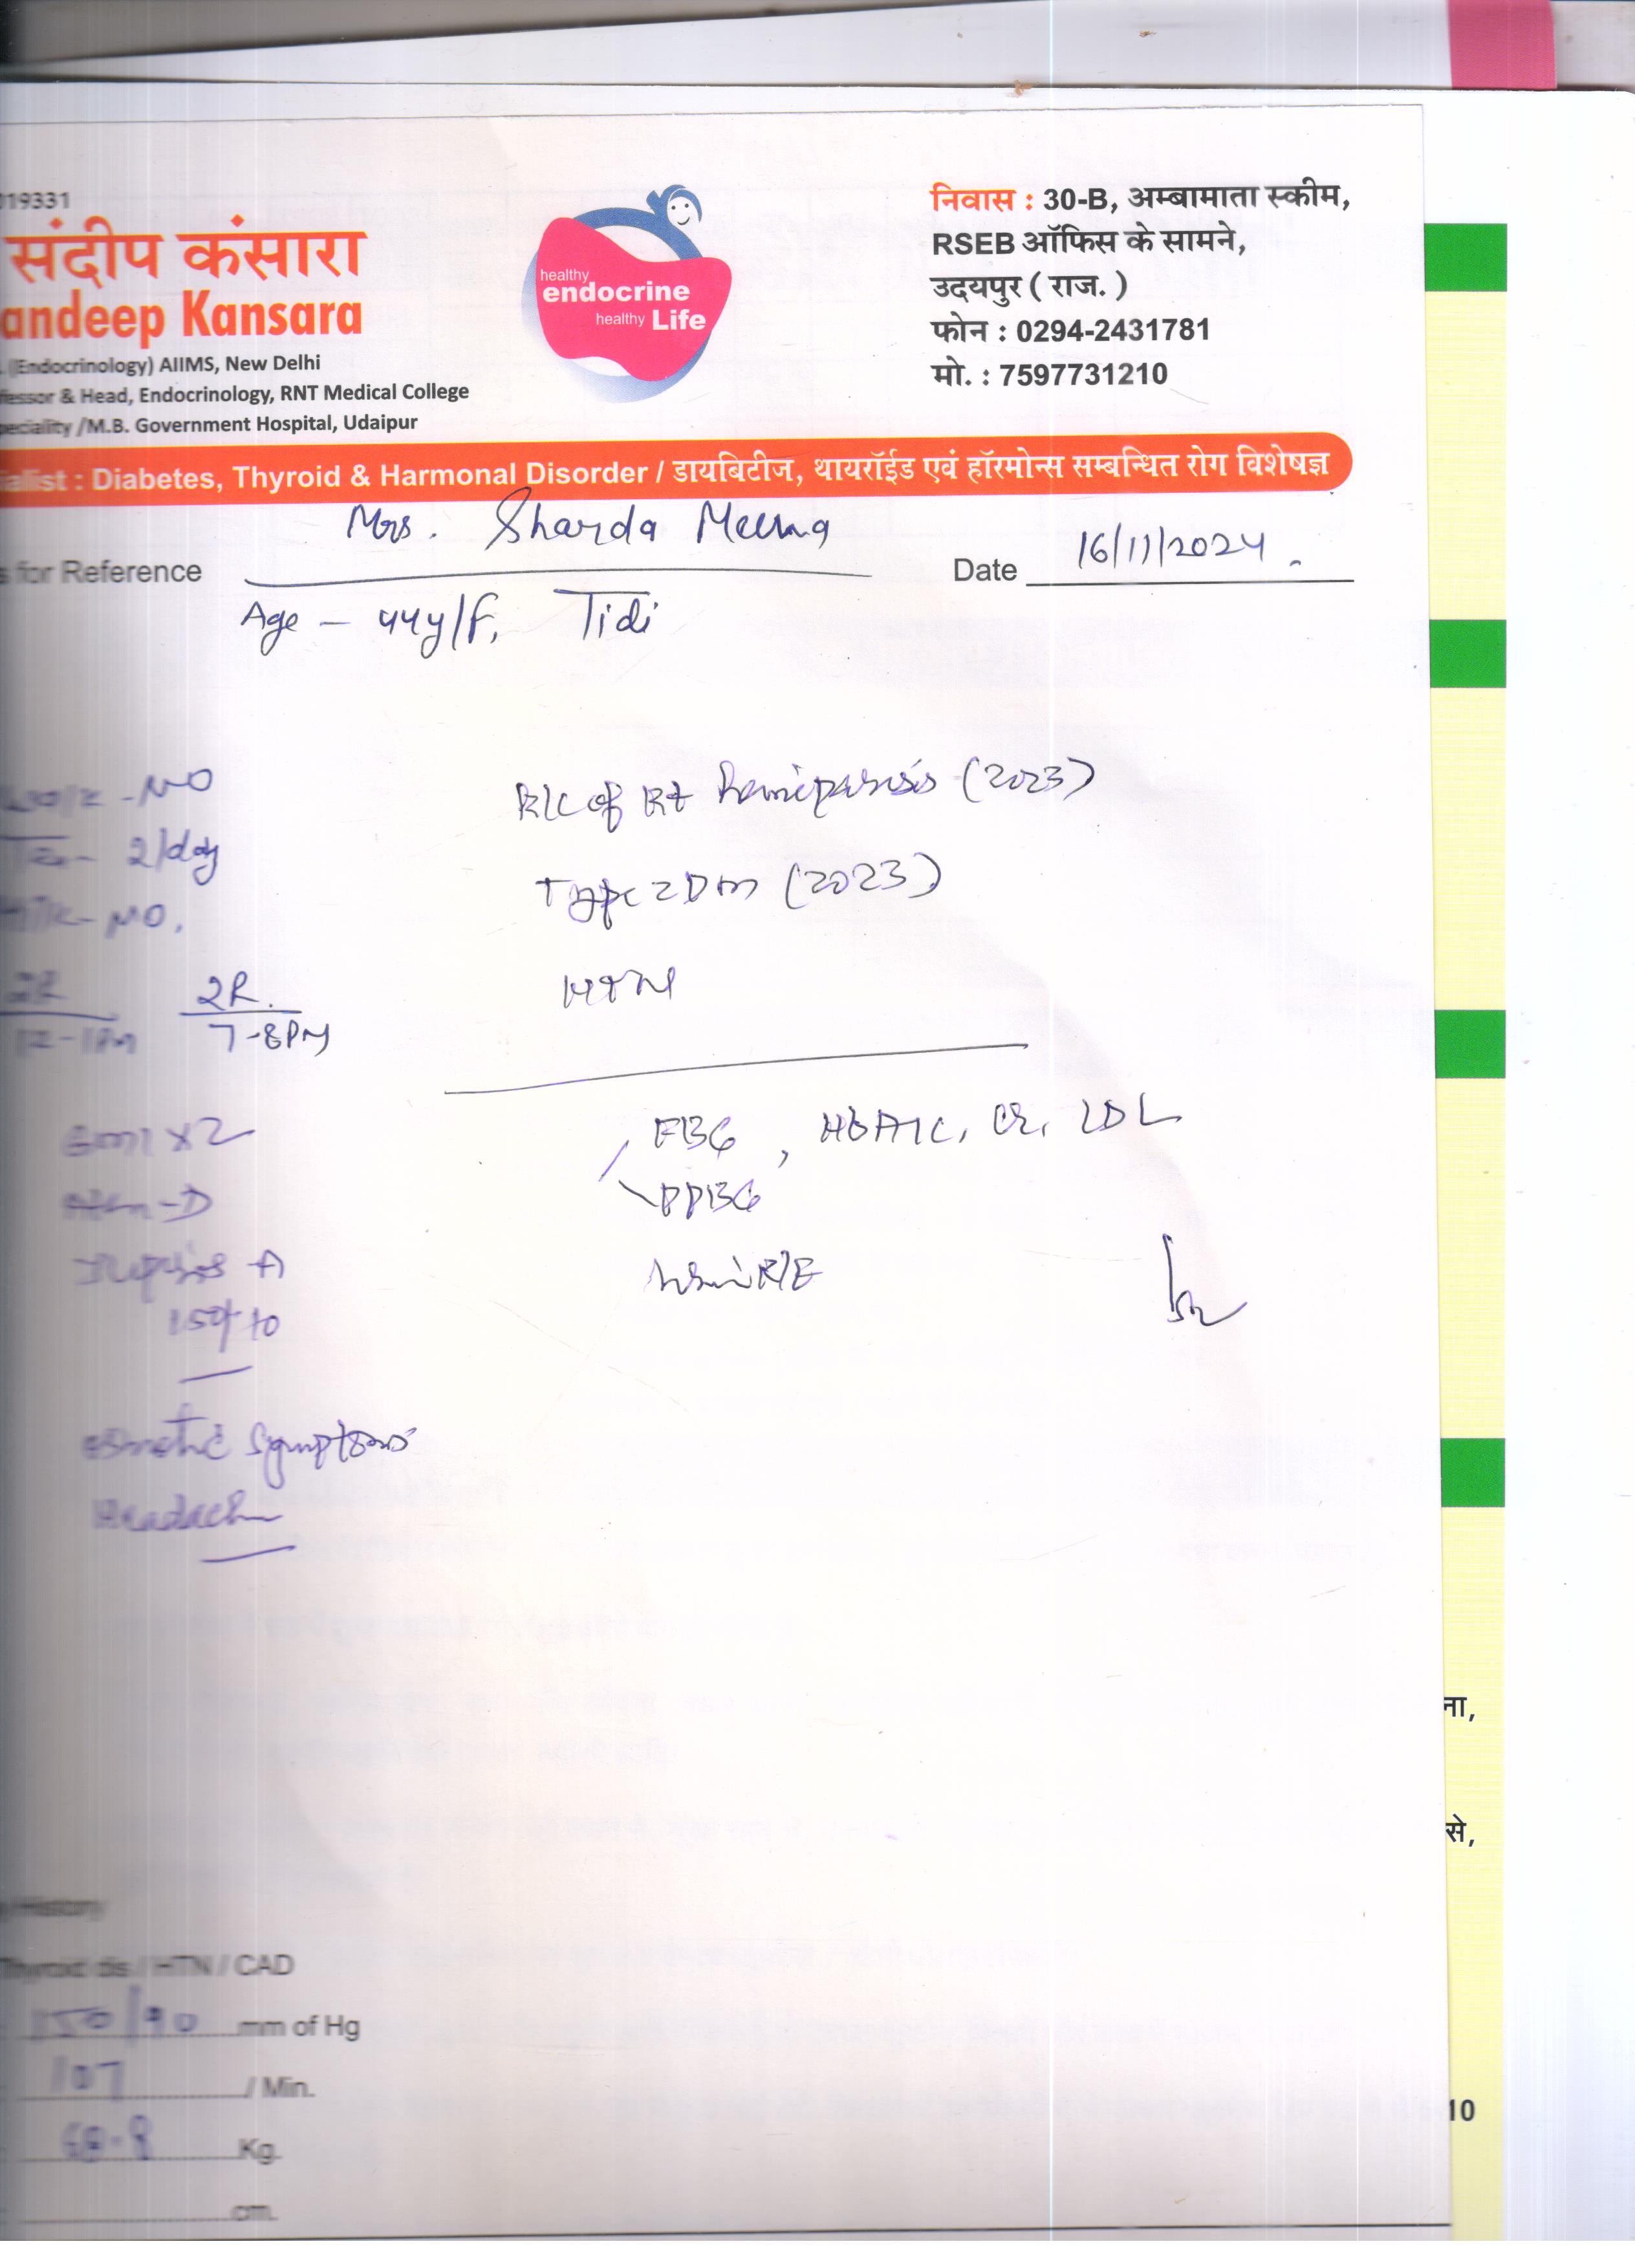 019331
संदीप कंसारा
andeep Kansara
(Endocrinology) AIIMS, New Delhi
fessor & Head, Endocrinology, RNT Medical College
peciality /M.B. Government Hospital, Udaipur
healthy
endocrine
healthy Life
निवास : 30-B, अम्बामाता स्कीम,
RSEB ऑफिस के सामने,
उदयपुर ( राज. )
फोन : 0294-2431781
मो. : 7597731210
ialist : Diabetes, Thyroid & Harmonal Disorder / डायबिटीज, थायरॉईड एवं हॉरमोन्स सम्बन्धित रोग विशेषज्ञ
Mrs. Sharda Meena
s for Reference
Date 16/11/2024.
Age - 44y/f, Tidi
- NO
2/day
- NO.
2R
12-1PM
2R.
7-8PM
x2
-D
A
Symptoms
Headach
K/C of Rt Hemiparesis (2023)
Type 2 DM (2023)
HTN
FBG, HbA1C, Cr, LDL
PPBG
Urine R/E
/History
Thyroid dis / HTN / CAD
150/90 mm of Hg
107 / Min.
68.9 Kg.
cm.
ना,
से,
10